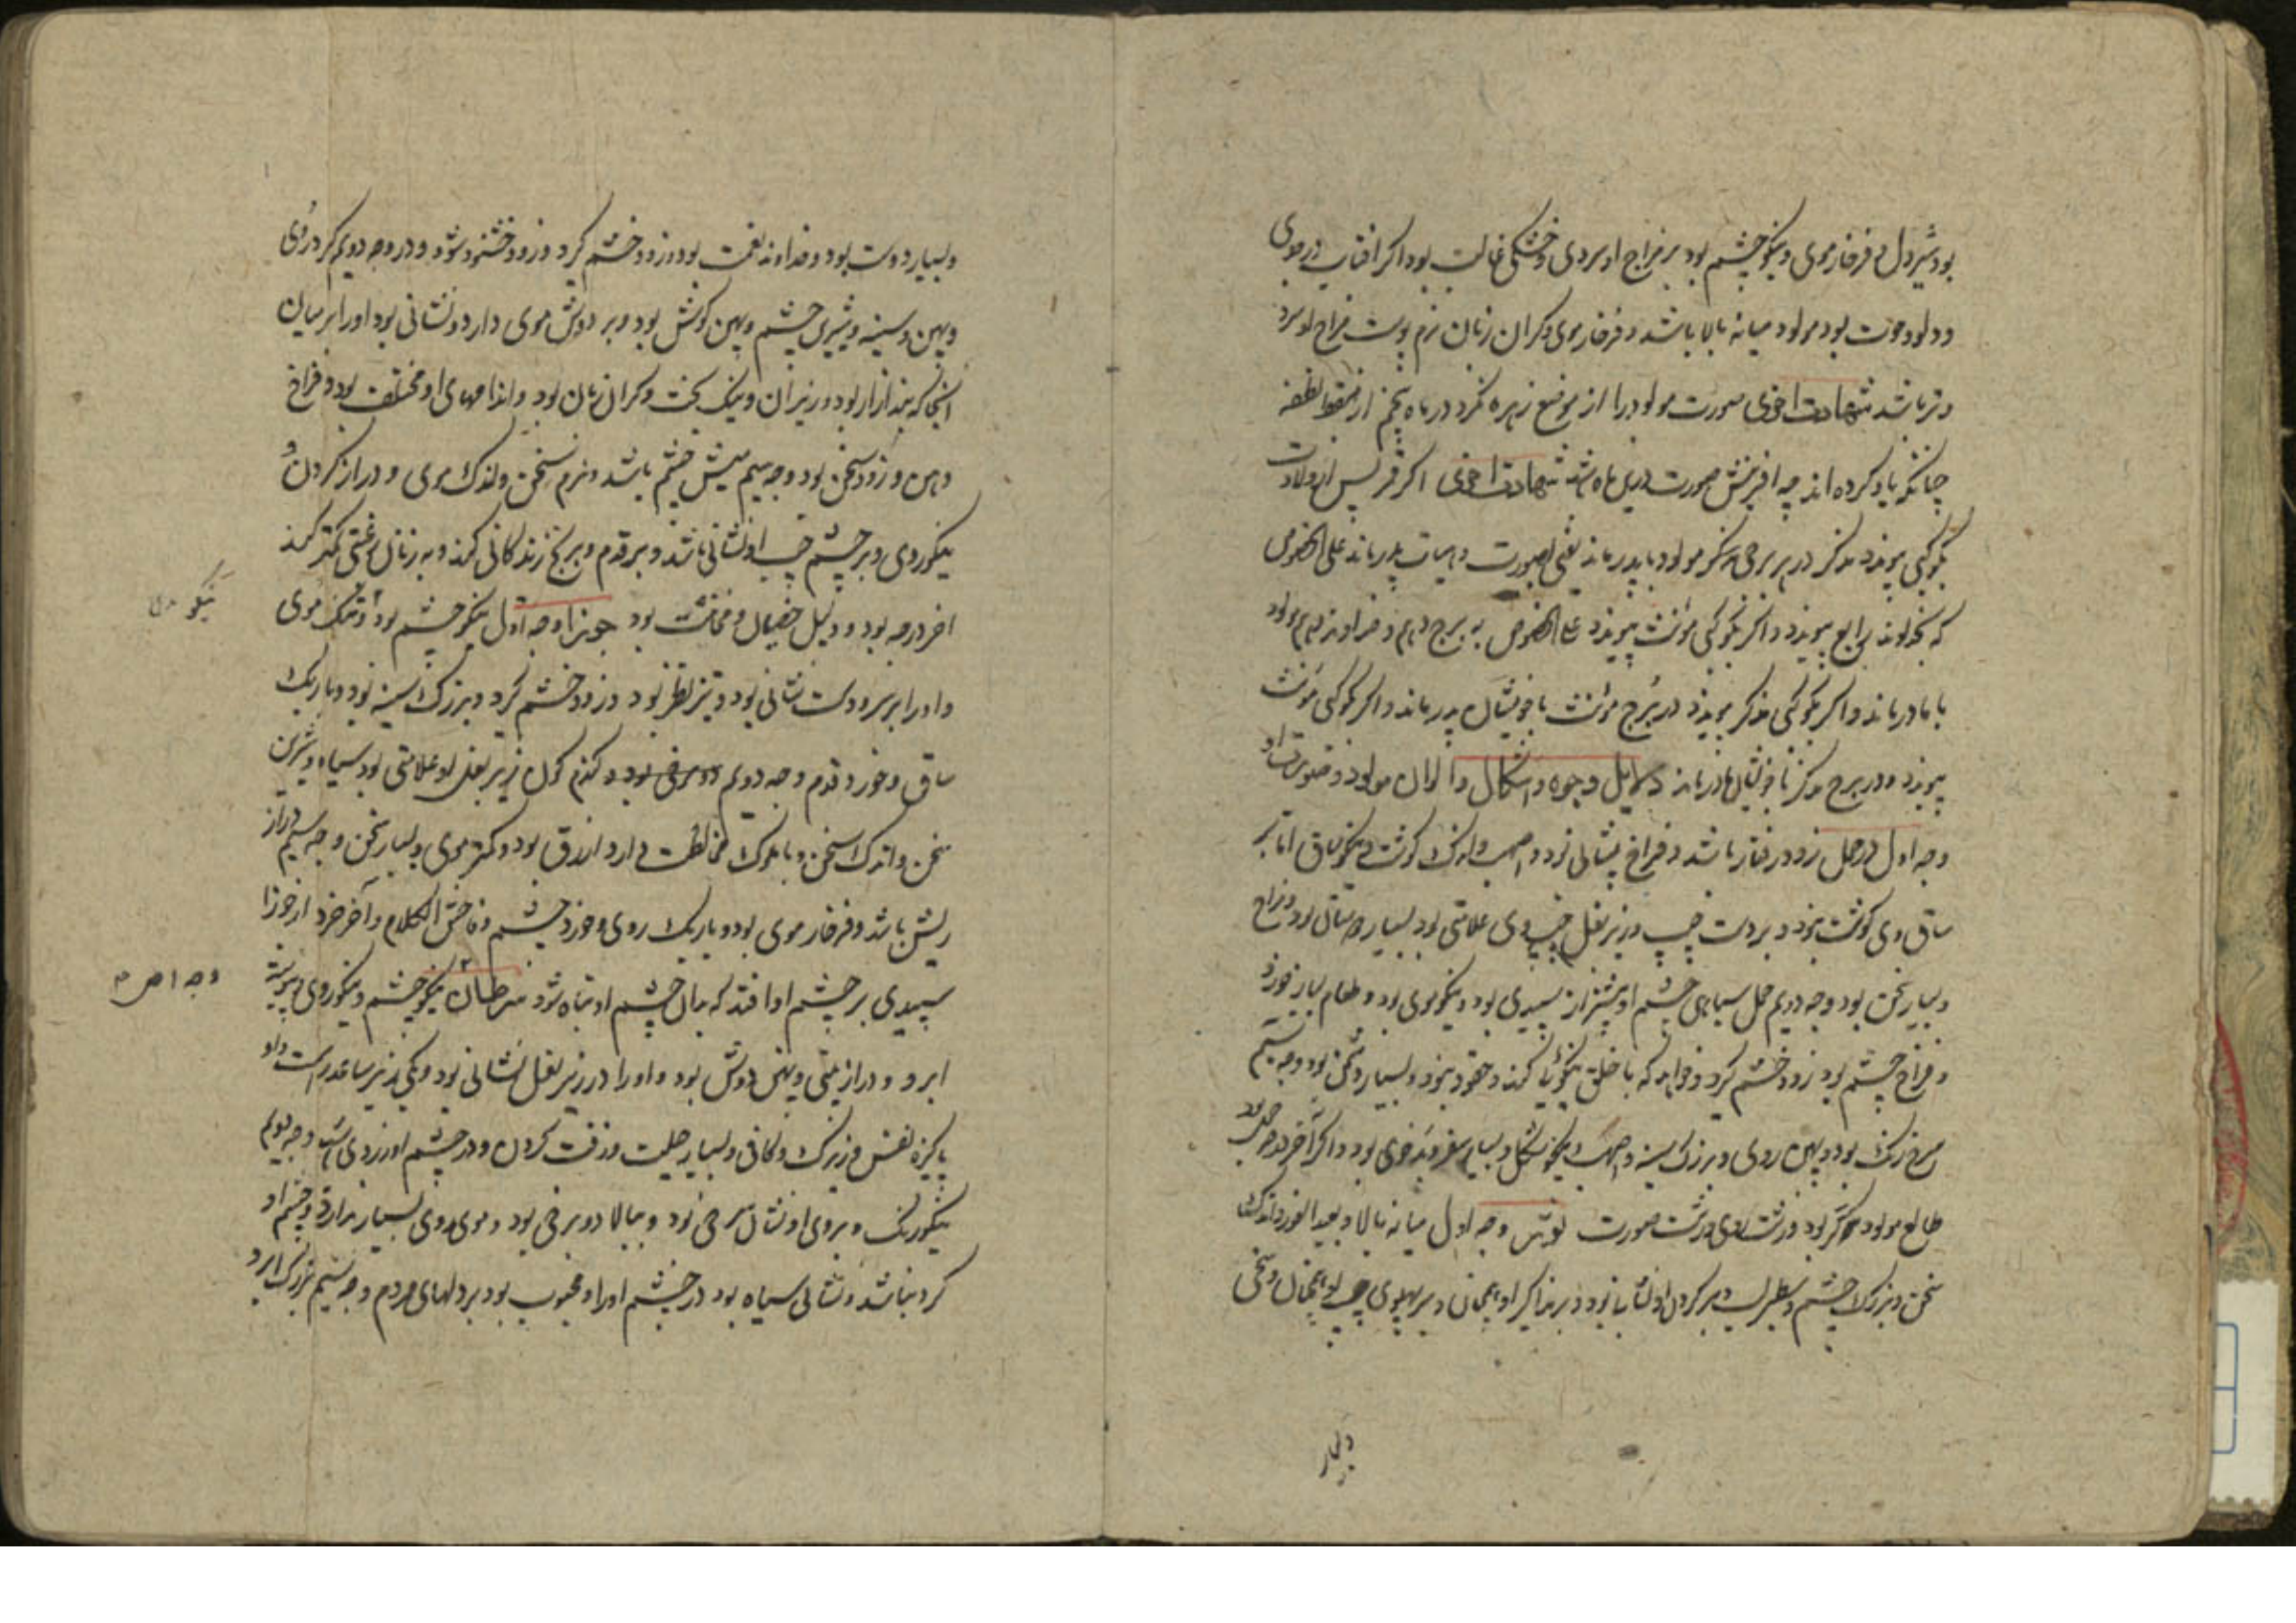 بود شیردل و فرخار موی و نیکو چشم بود بر مزاج او سردی و خشکی غالب بود اکر افتاب در جدی
و دلو و حوت بود مولود میانه بالا باشد و فرخار موی و کران زبان نرم پوست مزاج او سرد
و تر باشد شهادت اخری صورت مولود را از موضع زهره نکرد در ماه پنجم از مسقط نطفه
چنانکه یاد کرده اند چه افرینش صورت درین ماه باشد شهادت اخری اکر قمر پس از ولادت
بکوکبی پیوندد مذکر در برج مذکر مولود با پدر ماند یعنی بصورت و هیات پدر ماند علی الخصوص
که بخداوند رابع پیوندد و اکر بکوکبی مونث پیوندد علی الخصوص به برج دهم و خداوند دهم مولود
با مادر ماند و اکر بکوکبی مذکر پیوندد در برج مونث با خویشان پدر ماند و اکر بکوکبی مونث
پیوندد و در برج مذکر با خویشان مادر ماند دلایل وجوه و اشکال و الوان مولود و صورت او
وجه اول در حمل زود رفتار باشد و فراخ پیشانی بود و اندک کوشت و نیکو ساق اما بر
ساق وی کوشت نبود و بر دست چپ و زیر بغل چپ وی علامتی بود بسیار بود و مزاج
و بسیار سخن بود وجه دویم حمل سیاهی چشم او بیشتر از سپیدی بود و نیکو موی بود و طعام بسیار خورد
و فراخ چشم بود زود خشم کیرد و خواهد که با خلق نیکوئیها کند و حقود نبود و بسیار دشمن بود وجه سیم
سرخ رنک بود و پهن روی و بزرک سینه و نیکو شکل و بسیار سفر و بدخوی بود و اکر آخر درجه حمل بود
طالع مولود بود و زشت روی و زشت صورت ثور وجه اول میانه بالا و بعید الغور و اندک
سخن و بزرک چشم و سطبر لب و بر کردن او نشانها بود و بر او همچنان و بر پهلوی چپ او همچنان و سخی
و بسیار
و بسیار دوست بود و خداوند نعمت بود و زود خشم کیرد و زود خشنود شود و در وجه دویم کرد روی
و پهن و سینه و شیری چشم و پهن کوش بود و بر دوش موی دارد و نشانی بود او را بر میان
انجا که بند ازار بود و زیر ران و نیک بخت و کران زبان بود و اندامهای او مختلف بود و فراخ
دهن و زود سخن بود وجه سیم میش چشم باشد و نرم سخن و اندک موی و دراز کردن و
نیکوروی و بر چشم چپ او نشانی باشد و بر قدم و برنج زندکانی کند و به زنان رغبتی کمتر کند
اخر درجه بود و دلیل خصیان و مخانیث بود جوزا وجه اول نیکو چشم بود و تنک موی
و او را بر سر و دست نشانی بود و تیز نظر بود و زود خشم کیرد و بزرک سینه بود و باریک
ساق و خورد قدم وجه دویم کندم کون زیر بغل او علامتی بود سیاه و شیرین
سخن و اندک سخن و با ملوک مخالطت دارد و ازرق بود و کمتر موی و بسیار سخن وجه سیم دراز
ریش باشد و فرخار موی بود و باریک روی و خورد چشم و فاحش الکلام و آخر جزو از جوزا
سپیدی بر چشم او افتد که بدان چشم او تباه شود سرطان نیکو چشم و نیکو روی و پیوسته
ابرو و دراز بینی و پهن دوش بود و او را در زیر بغل نشانی بود و یکی زیر ساعد راست و او
پاکیزه نفس و زیرک و کافی و بسیار حیلت و زفت کردن و در چشم او زردی است وجه دویم
نیکو رنک و بروی او نشان سرخی بود و ببالا دو برخی بود و موی روی بسیار ندارد و چشم او
کرد نباشد و نشانی سیاه بود در چشم او را و محبوب بود بر دلهای مردم وجه سیم بزرک ابرو
نیکو
وجه اول